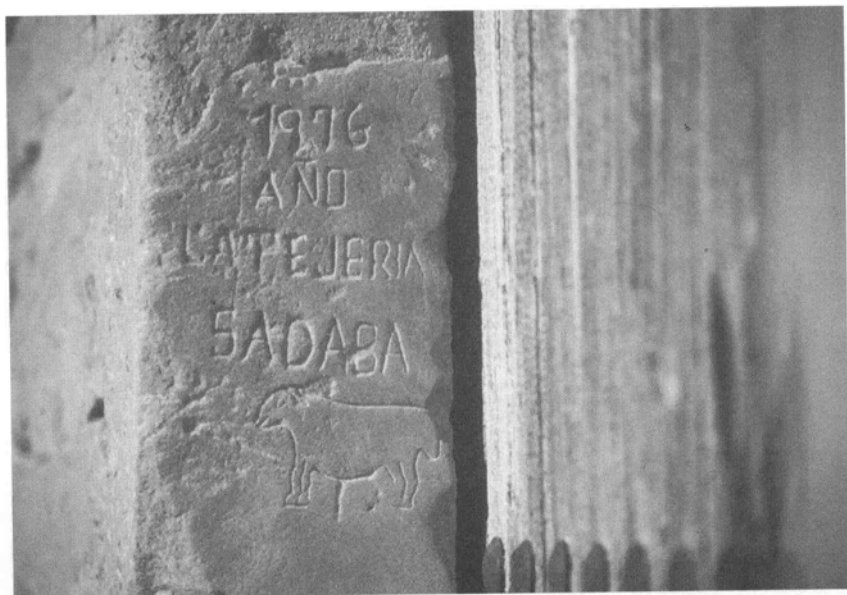 1976
AÑO
LATEJERIA
SADABA